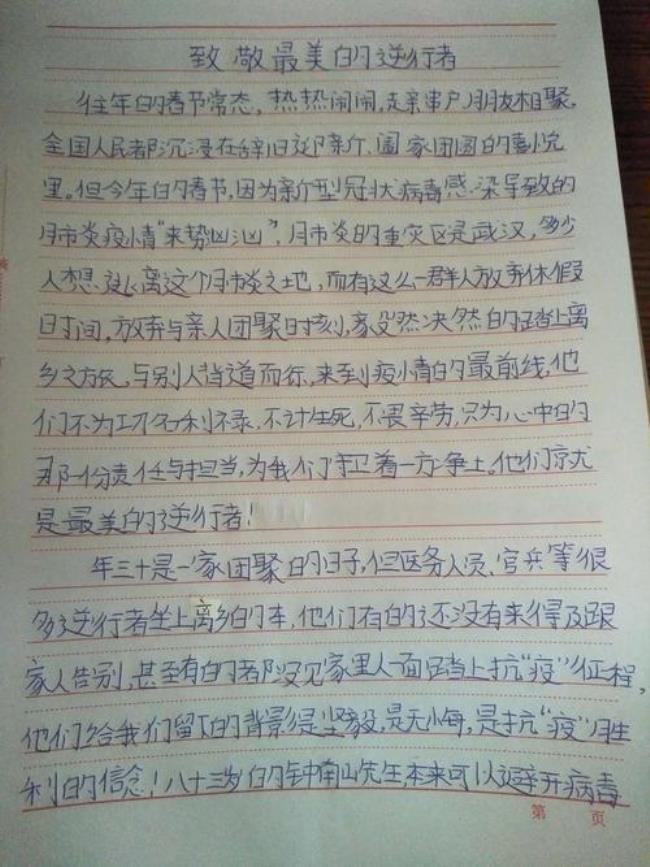 致敬最美的逆行者
往年的春节常态，热热闹闹，走亲串户，朋友相聚，
全国人民都沉浸在辞旧迎新、阖家团圆的喜悦
里。但今年的春节，因为新型冠状病毒感染导致的
肺炎疫情“来势汹汹”，肺炎的重灾区是武汉，多少
人想逃离这个肺炎之地，而有这么一群人放弃休假
时间，放弃与亲人团聚时刻，毅然决然的踏上离
乡之旅，与别人背道而行，来到疫情的最前线，他
们不为功名利禄，不计生死，不畏辛劳，只为心中的
那一份责任与担当，为我们守卫着一方净土。他们就
是最美的逆行者！
年三十是一家团聚的日子，但医务人员、官兵等很
多逆行者坐上离乡的车，他们有的还没有来得及跟
家人告别，甚至有的都没见家里人一面踏上抗“疫”征程，
他们给我们留下的背影是坚毅，是无悔，是抗“疫”胜
利的信念！八十三岁的钟南山先生，本来可以避开病毒
第 页